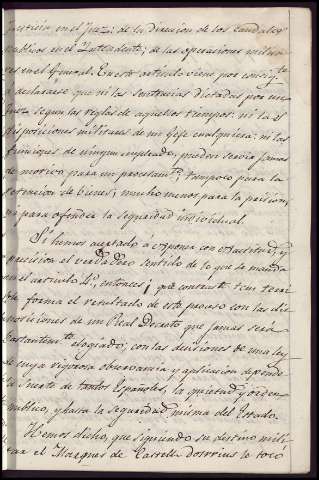 justicia en el Juez: de la direccion de los caudales
publicos en el Intendente; de las operaciones milita
res en el General. En este articulo viene por consigte
a declararse que ni las sentencias dictadas por un
Juez segun las reglas de aquellos tiempos: ni las dis
posiciones militares de un Gefe cualquiera: ni las
funciones de ningun empleado, puedan servir jamas
de motivo, para un procesamto; tampoco para la
retencion de bienes; mucho menos para la prision,
ni para ofender la seguridad individual.
Si hemos acertado á exponer con exactitud, y
precision el verdadero sentido de lo que se manda
en el articulo 2º, entonces ¿que contraste tan terri
ble forma el resultado de este proceso con las dis
posiciones de un Real Decreto que jamas será
bastantemte elogiado; con las decisiones de una ley
de cuya rigorosa observancia y aplicacion depende
la suerte de tantos Españoles, la quietud, y orden
publico, y hasta la seguridad misma del Estado.
Hemos dicho, que siguiendo su destino mili
tar el Marques de Castell-dosrius le tocó